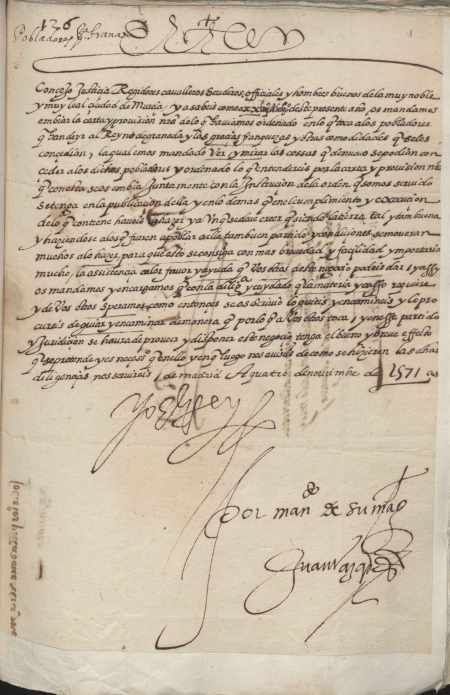 126
Pobladores pa Granada
El Rey
Concejo Justicia Regidores cavalleros Escuderos officiales y hombres buenos de la muy noble
y muy leal ciudad de Murcia / ya sabeis como a xx deste presente año os mandamos
embiar la carta y provision nra de lo que haviamos ordenado en lo que toca a los pobladores
que han de yr al Reyno de granada y las gracias franquezas y otras comodidades que se les
concedian / la qual emos mandado Ver y mirar las cossas que de nuevo se podian con
ceder a los dichos pobladores y ordenado lo que entendereis por la carta y provision nra
que con esta se os embia Juntamente con la Instrucion de la orden que somos servido
se tenga en la publicacion della y en lo demas que en el cumplimiento y execucion
de lo que contiene haveis de hazer ya Unque se deve creer que siendo la tierra tal y tan buena
y haziendose a los que fueren a poblar a ella tan buen partido y condiciones se moveran
muchos a lo hazer para que esto se consiga con mas brevedad y facilidad ymportaria
mucho la asistencia calor favor y ayuda que Vos otros deste negocio podreis dar / y assy
os mandamos y encargamos que con la dilig y cuydado que la materia y asso requiere
y de Vos otros speramos como entonces se os scrivio lo guieis y encamineis y lo pro
cureis de guiar y encaminar de manera que por lo que a Vos otros toca / y en esse partido
y Juridicion se huviere de proveer y disponer este negocio tenga el bueno y breve effecto
que se pretende y es necess° que en ello y en que luego nos aviseis de como se hizieren las dichas
diligencias nos servireis / de madrid A quatro de noviembre de 1571 as
Yo El Rey
Por mando de su mag
Juan vazquez